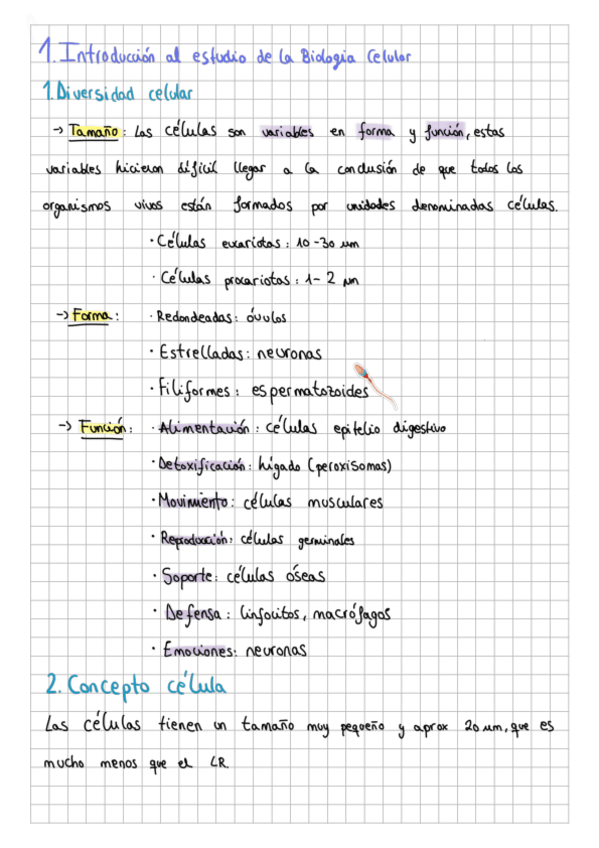 1. Introducción al estudio de la Biologia Celular
1. Diversidad celular
→ Tamaño: Las células son variables en forma y función, estas
variables hicieron difícil llegar a la conclusión de que todos los
organismos vivos están formados por unidades denominadas células.
· Células eucariotas: 10-30 μm
· Células procariotas: 1-2 μm
→ Forma: · Redondeadas: óvulos
· Estrelladas: neuronas
· Filiformes: espermatozoides
→ Función: · Alimentación: células epitelio digestivo
· Detoxificación: hígado (peroxisomas)
· Movimiento: células musculares
· Reproducción: células germinales
· Soporte: células óseas
· Defensa: linfocitos, macrófagos
· Emociones: neuronas
2. Concepto célula
Las células tienen un tamaño muy pequeño y aprox 20 μm, que es
mucho menos que el LR